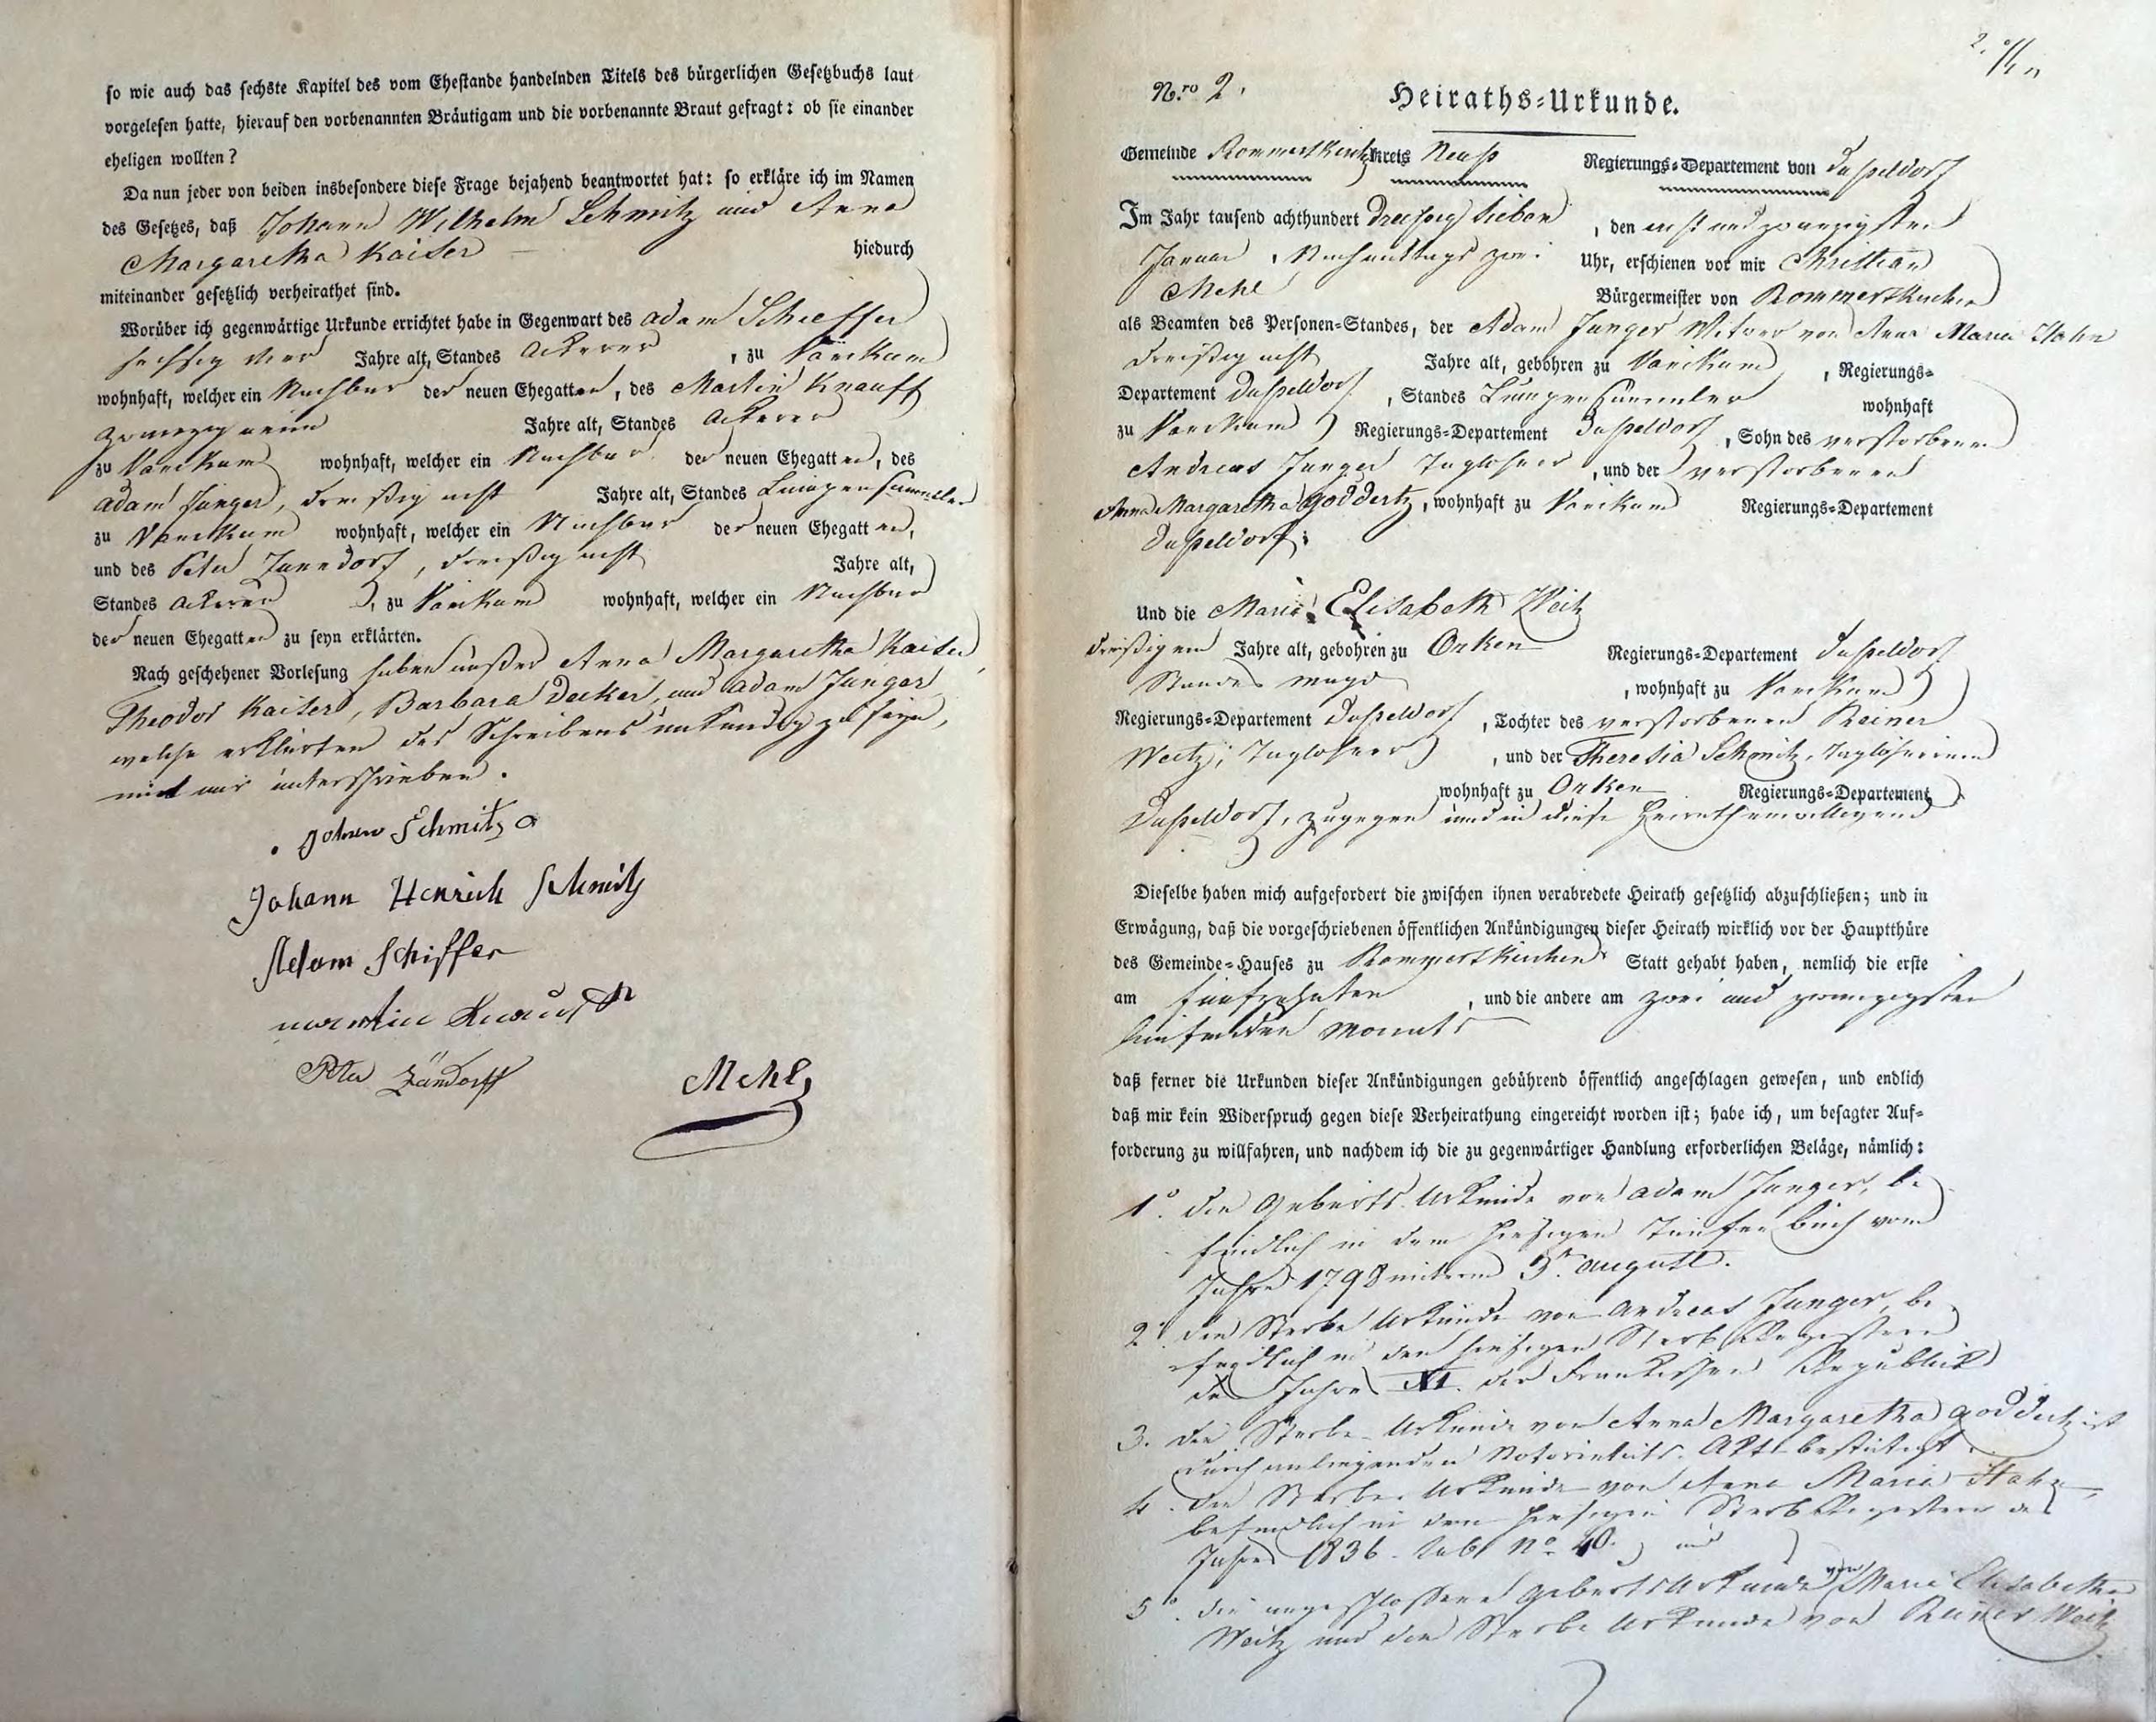 so wie auch das sechste Kapitel des vom Ehestande handelnden Titels des bürgerlichen Gesetzbuchs laut
vorgelesen hatte, hierauf den vorbenannten Bräutigam und die vorbenannte Braut gefragt: ob sie einander
eheligen wollten?
Da nun jeder von beiden insbesondere diese Frage bejahend beantwortet hat: so erkläre ich im Namen
des Gesetzes, daß Johann Wilhelm Schmitz und Anna
Margaretha Kaiser hiedurch
miteinander gesetzlich verheirathet sind.
Worüber ich gegenwärtige Urkunde errichtet habe in Gegenwart des Adam Schieffer
sechszig vier Jahre alt, Standes Ackerer, zu Vanikum
wohnhaft, welcher ein Nachbar der neuen Ehegatten, des Martin Knauff
zwanzig neun Jahre alt, Standes Ackerer
zu Vanikum wohnhaft, welcher ein Nachbar der neuen Ehegatten, des
Adam Junger, dreißig acht Jahre alt, Standes Lumpensammler
zu Vanikum wohnhaft, welcher ein Nachbar der neuen Ehegatten,
und des Peter Zanndorf, dreißig acht Jahre alt,
Standes Ackerer, zu Vanikum wohnhaft, welcher ein Nachbar
der neuen Ehegatten zu seyn erklärten.
Nach geschehener Vorlesung haben außer Anna Margaretha Kaiser,
Theodor Kaiser, Barbara Decker, und Adam Junger,
welche erklärten des Schreibens unkundig zu seyn,
mit mir unterschrieben.
Johan Schmitz
Johann Henrich Schmitz
Adam Schiffer
martin Knauff
Peter Zündorff
Mehl
2.
Nro 2. Heiraths-Urkunde.
Gemeinde Rommerskirchen Kreis Neuß Regierungs-Departement von Düsseldorf
Im Jahr tausend achthundert dreißig sieben, den ein und zwanzigsten
Januar, Nachmittags zwei Uhr, erschienen vor mir Christian
Mehl Bürgermeister von Rommerskirchen
als Beamten des Personen-Standes, der Adam Junger Witwer von Anna Maria Hahn
dreißig acht Jahre alt, gebohren zu Vanikum, Regierungs-
Departement Düsseldorf, Standes Lumpensammler wohnhaft
zu Vanikum Regierungs-Departement Düsseldorf, Sohn des verstorbenen
Andreas Junger Taglöhner, und der verstorbenen
Anna Margaretha Goddertz, wohnhaft zu Vanikum Regierungs-Departement
Düsseldorf;
Und die Maria Elisabeth Weitz
dreißig Jahre alt, gebohren zu Orken Regierungs-Departement Düsseldorf
Standes Magd, wohnhaft zu Vanikum
Regierungs-Departement Düsseldorf, Tochter des verstorbenen Reiner
Weitz, Taglöhner, und der Theresia Schmitz, Taglöhnerinn
wohnhaft zu Orken Regierungs-Departement
Düsseldorf, zugegen und in diese Heirath einwilligend
Dieselbe haben mich aufgefordert die zwischen ihnen verabredete Heirath gesetzlich abzuschließen; und in
Erwägung, daß die vorgeschriebenen öffentlichen Ankündigungen dieser Heirath wirklich vor der Hauptthüre
des Gemeinde-Hauses zu Rommerskirchen Statt gehabt haben, nemlich die erste
am fünfzehnten, und die andere am zwei und zwanzigsten
laufenden Monats
daß ferner die Urkunden dieser Ankündigungen gebührend öffentlich angeschlagen gewesen, und endlich
daß mir kein Widerspruch gegen diese Verheirathung eingereicht worden ist; habe ich, um besagter Auf-
forderung zu willfahren, und nachdem ich die zu gegenwärtiger Handlung erforderlichen Beläge, nämlich:
1º. die Geburts Urkunde von Adam Junger, be-
findlich in dem hiesigen Taufenbuch vom
Jahre 1798 unterm 5n. August.
2º. die Sterbe Urkunde von Andreas Junger, be-
findlich in den hiesigen Sterb Registern
des Jahres XI. der Frankischen Republik
3. die Sterbe Urkunde von Anna Margaretha Goddertz ist
durch anliegenden Notorietäts Akt bestätigt.
4. die Sterbe Urkunde von Anna Maria Hahn,
befindlich in den hiesigen Sterb Registern des
Jahres 1836. sub Nº 40. und
5º. die angeschlossene Geburts Urkunde von Maria Elisabetha
Weitz und die Sterbe Urkunde von Reiner Weitz